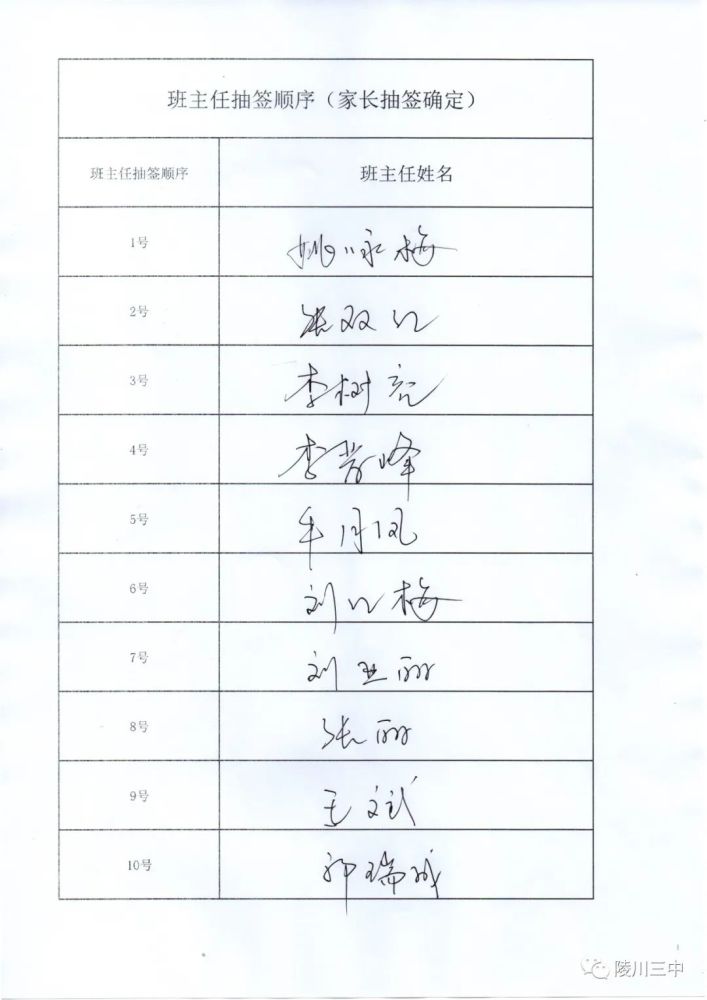 班主任抽签顺序（家长抽签确定）
班主任抽签顺序 班主任姓名
1号 姚咏梅
2号 张双
3号 李树亮
4号 李 峰
5号 牛月凤
6号 刘 梅
7号 刘亚丽
8号 张丽
9号 王文斌
10号 郭瑞
陵川三中